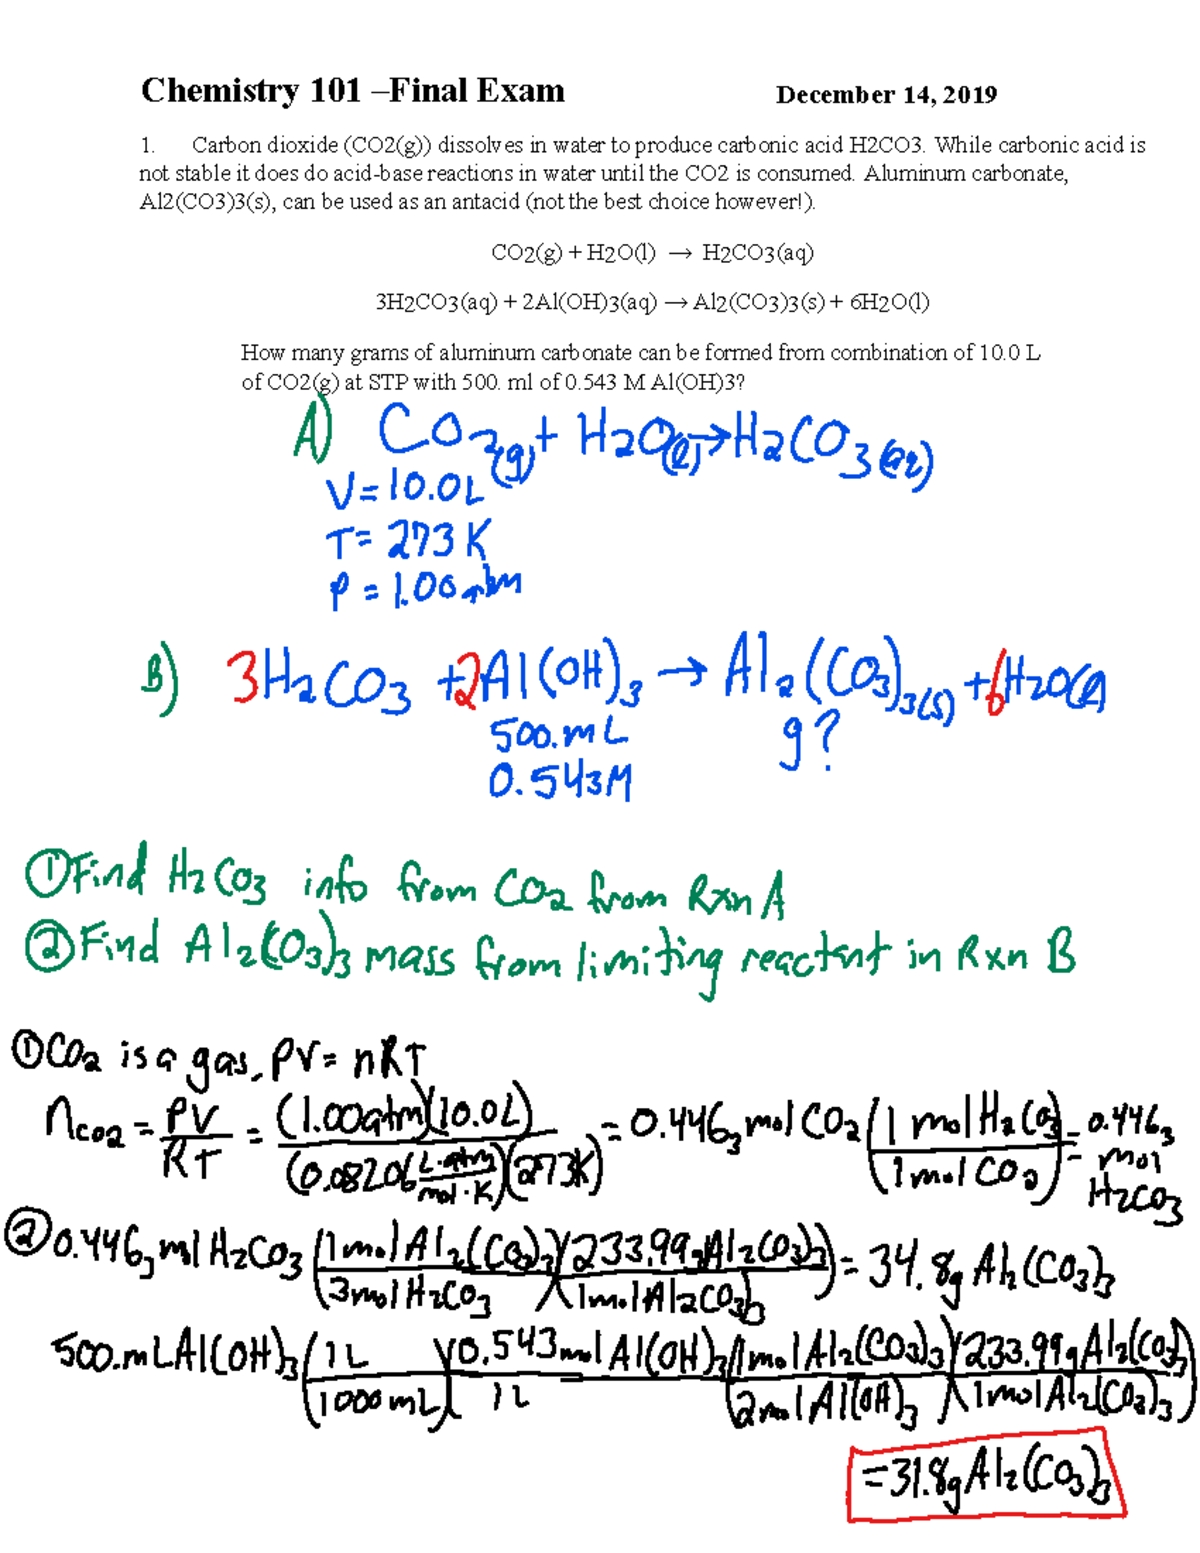 Chemistry 101 –Final Exam December 14, 2019
1. Carbon dioxide (CO2(g)) dissolves in water to produce carbonic acid H2CO3. While carbonic acid is
not stable it does do acid-base reactions in water until the CO2 is consumed. Aluminum carbonate,
Al2(CO3)3(s), can be used as an antacid (not the best choice however!).
CO2(g) + H2O(l) → H2CO3(aq)
3H2CO3(aq) + 2Al(OH)3(aq) → Al2(CO3)3(s) + 6H2O(l)
How many grams of aluminum carbonate can be formed from combination of 10.0 L
of CO2(g) at STP with 500. ml of 0.543 M Al(OH)3?
A) CO2(g) + H2O(l) → H2CO3(aq)
V = 10.0L
T = 273 K
P = 1.00 atm
B) 3H2CO3 + 2Al(OH)3 → Al2(CO3)3(s) + 6H2O(l)
500. mL g?
0.543M
① Find H2CO3 info from CO2 from Rxn A
② Find Al2(CO3)3 mass from limiting reactant in Rxn B
① CO2 is a gas, PV = nRT
nCO2 = PV/RT = (1.00atm)(10.0L)/(0.08206 L·atm/mol·K)(273K) = 0.4463 mol CO2 (1 mol H2CO3/1 mol CO2) = 0.4463 mol H2CO3
② 0.4463 mol H2CO3 (1 mol Al2(CO3)3/3 mol H2CO3)(233.99g Al2(CO3)3/1 mol Al2(CO3)3) = 34.8g Al2(CO3)3
500. mL Al(OH)3 (1L/1000 mL)(0.543 mol Al(OH)3/1L)(1 mol Al2(CO3)3/2 mol Al(OH)3)(233.99g Al2(CO3)3/1 mol Al2(CO3)3)
= 31.8g Al2(CO3)3